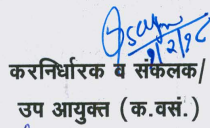 करनिर्धारक व संकलक/
उप आयुक्त (क.वसं.)